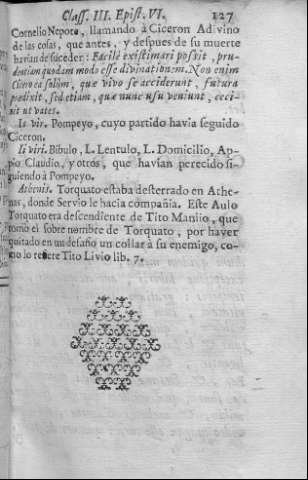 Class. III. Epist. VI. 127
Cornelio Nepote, llamando à Ciceron Adivino
de las cosas, que antes, y despues de su muerte
havian de suceder: Facilè existimari possit, pru-
dentiam quodam modo esse divinationem. Non enim
Cicero ea solùm, quæ vivo se acciderunt, futura
prædixit, sed etiam, quæ nunc usu veniunt, ceci-
nit ut vates.
Is vir. Pompeyo, cuyo partido havia seguido
Ciceron.
Ii viri. Bibulo, L. Lentulo, L. Domicilio, Ap-
pio Claudio, y otros, que havian perecido si-
guiendo à Pompeyo.
Athenis. Torquato estaba desterrado en Athe-
nas, donde Servio le hacia compañia. Este Aulo
Torquato era descendiente de Tito Manlio, que
tomò el sobre nombre de Torquato, por haver
quitado en un desafio un collar à su enemigo, co-
mo lo refiere Tito Livio lib. 7.